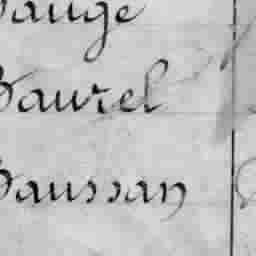 Bauge
Baurel
Baussan